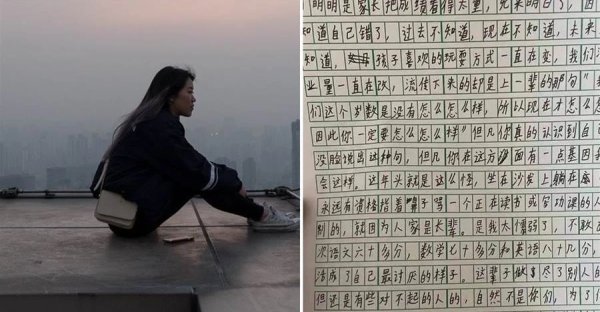 明明是家长把成绩看得太重,
知道自己错了,过去不知道,现在不知道,未来
知道,孩子喜欢的玩耍方式一直在变,我们
业量一直在改,流传下来的却是上一辈的那句"
们这个岁数是没有怎么怎么样,所以现在才怎么怎
因此你一定要怎么怎么样"但凡你真的认识到自己
没脸说出这种句,但凡你在这方面有一点基因我
会这样。这年头就是这么怪,坐在沙发上躺在
永远有资格指着鼻子骂一个正在读书或写功课的人
别的,就因为人家是长辈。是我太懦弱了,不敢
次语文六十多分,数学七十多分和英语八十几分,
活成了自己最讨厌的样子。这辈子做尽了别人的
但还是有些对不起的人的,自然不是你们,为了